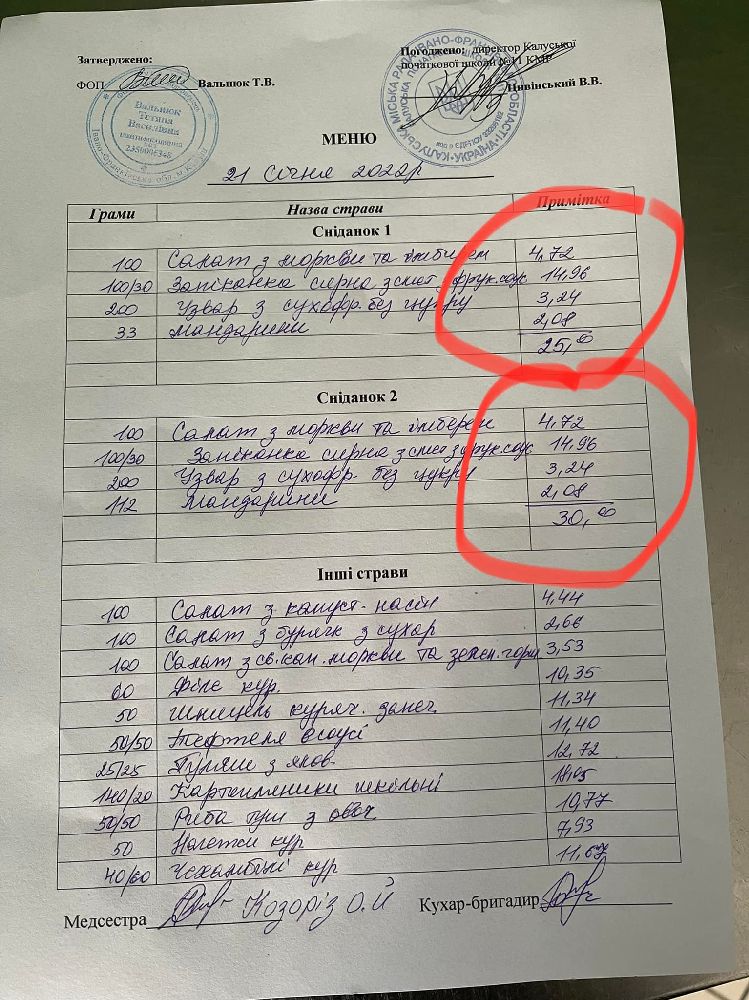 Затверджено:
ФОП Вальнюк Т.В.
Погоджено: директор Калуської
початкової школи №11 КМР
Цивінський В.В.
Вальнюк
Тетяна
Василівна
2350006348
МЕНЮ
21 січня 2022р
Грами Назва страви Примітка
Сніданок 1
100 Салат з моркви та імбирем 4,72
100/30 Запіканка сирна з смет. фрук. соус 14,96
200 Узвар з сухофр. без цукру 3,24
33 мандарини 2,08
25,00
Сніданок 2
100 Салат з моркви та імберем 4,72
100/30 Запіканка сирна з смет з фрук. соус 14,96
200 Узвар з сухофр. без цукру 3,24
112 Мандарини 2,08
30,00
Інші страви
100 Салат з капуст. насін 4,44
100 Салат з буряк з сухар 2,66
100 Салат з св. кап. моркви та зелен. горш 3,53
60 Філе кур. 10,35
50 Шніцель куряч. 11,34
50/50 Тефтеля в соусі 11,40
25/25 Гуляш з ялов. 12,72
140/20 Картопляники шкільні
50/50 Риба туш з овоч 10,77
50 Нагетси кур 7,93
40/60 кур
Медсестра Козоріз О.Й
Кухар-бригадир